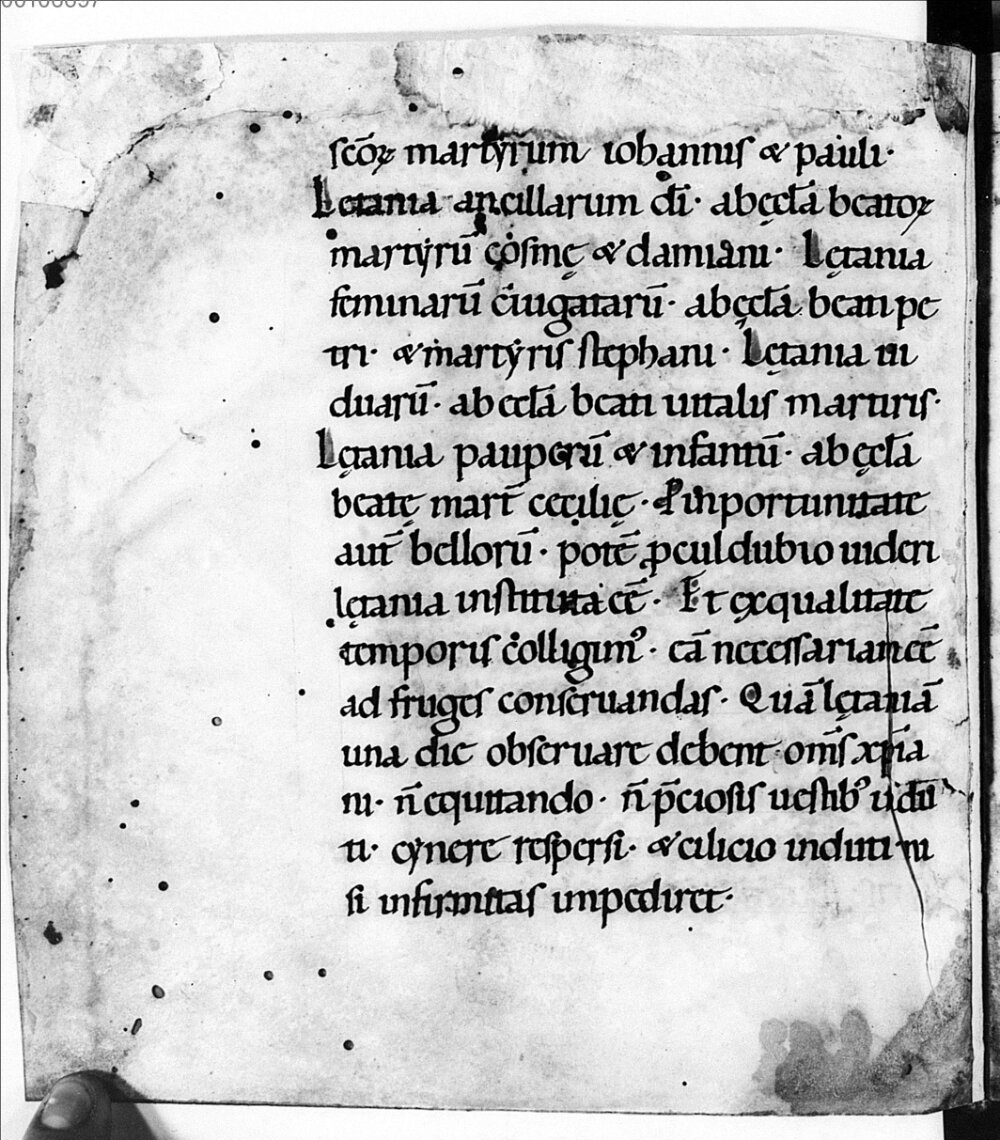 scōꝝ martyrum iohannis & pauli·
Letania ancillarum dī· ab ęcclā beatoꝝ
martyrū cosmę & damiani· Lętania
feminarū ciugatarū· ab ęcclā beati pe
tri· & martyris stephani· Lętania ui
duarū· ab ecclā beati uitalis martiris·
Lętania pauperū & infantū· ab ęcclā
beatę mart̄ cecilię· P inportunitate
aut̄ belloꝝū· potē ꝓculdubio uideri
lętania instituta eē· Et ęxqualitate
temporis colligim᾽· eā necessariam eē
ad fruges conseruandas· Quā lętaniā
una die obseruare debent om̄s xp̄ia
ni· n̄ equitando· n̄ p̄ciosis uestib᾽
ti· cynere respersi· & cilicio induti ni
si infirmitas impediret·